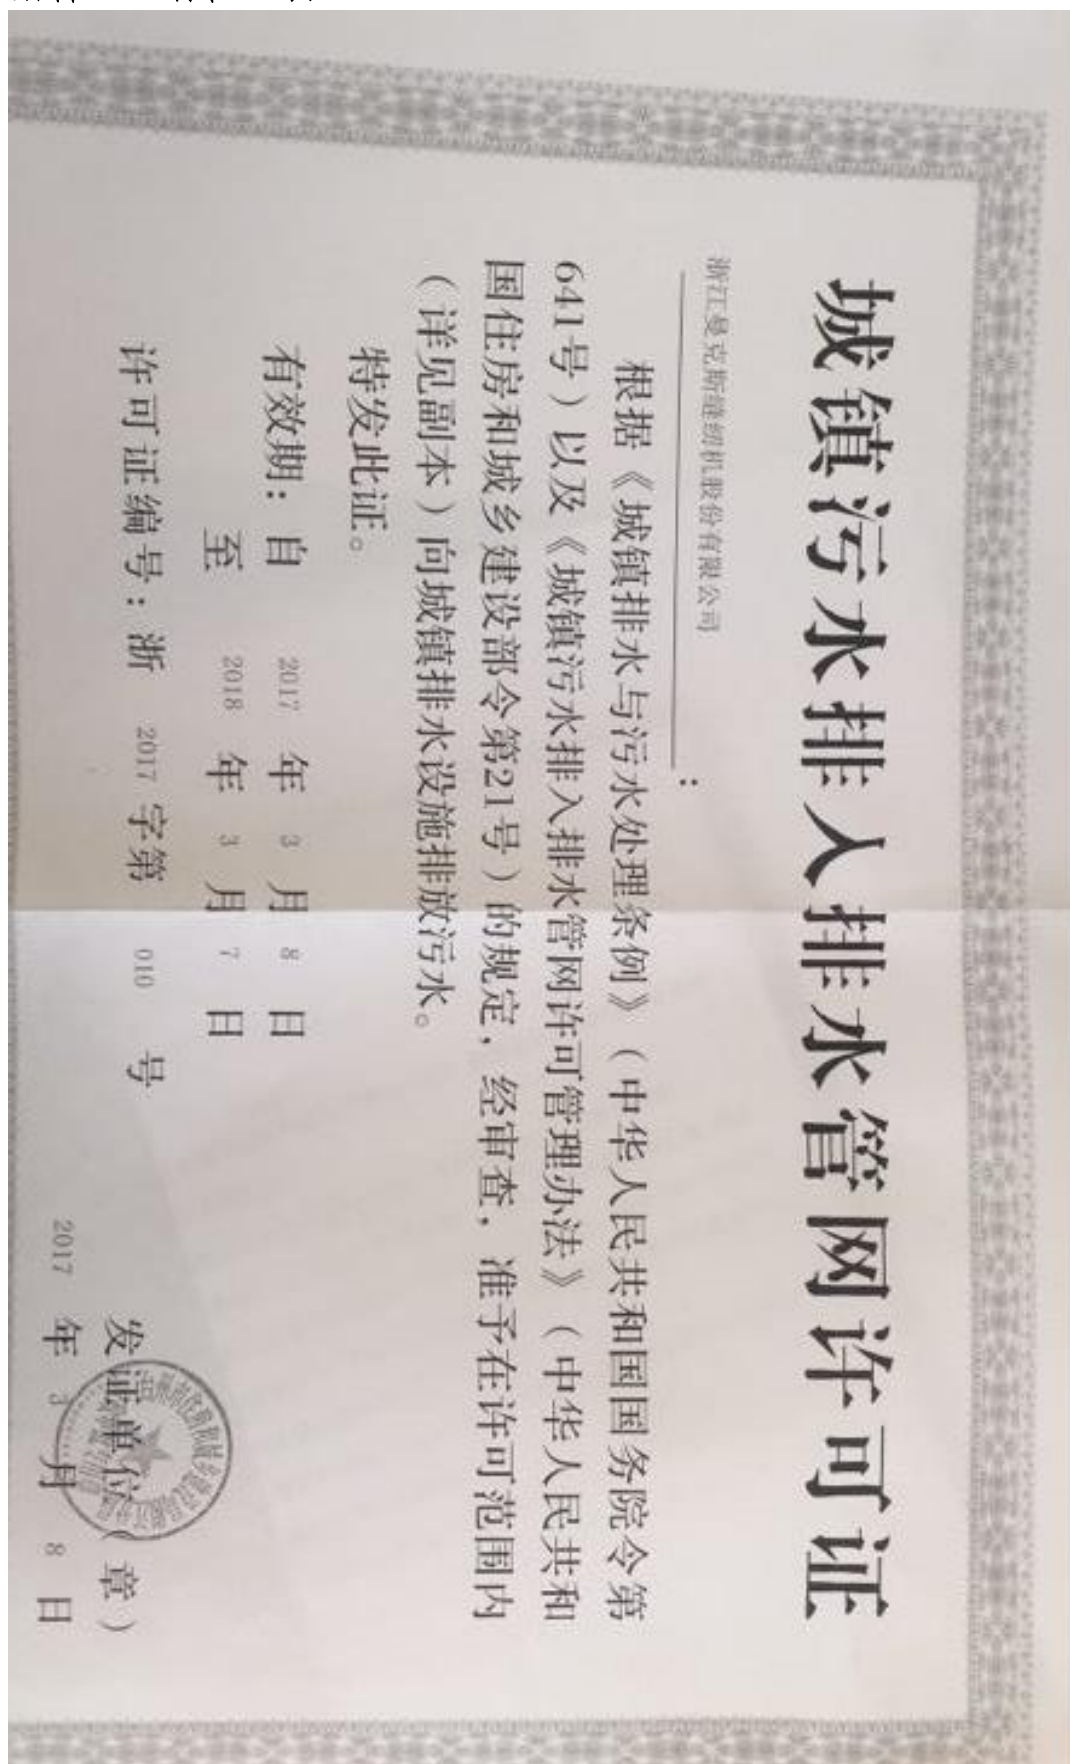 城镇污水排入排水管网许可证
浙江曼克斯缝纫机股份有限公司：
根据《城镇排水与污水处理条例》（中华人民共和国国务院令第
641号）以及《城镇污水排入排水管网许可管理办法》（中华人民共和
国住房和城乡建设部令第21号）的规定，经审查，准予在许可范围内
（详见副本）向城镇排水设施排放污水。
特发此证。
有效期：自 2017 年 3 月 8 日
至 2018 年 3 月 7 日
许可证编号：浙 2017 字第 010 号
发证单位（章）
2017 年 3 月 8 日